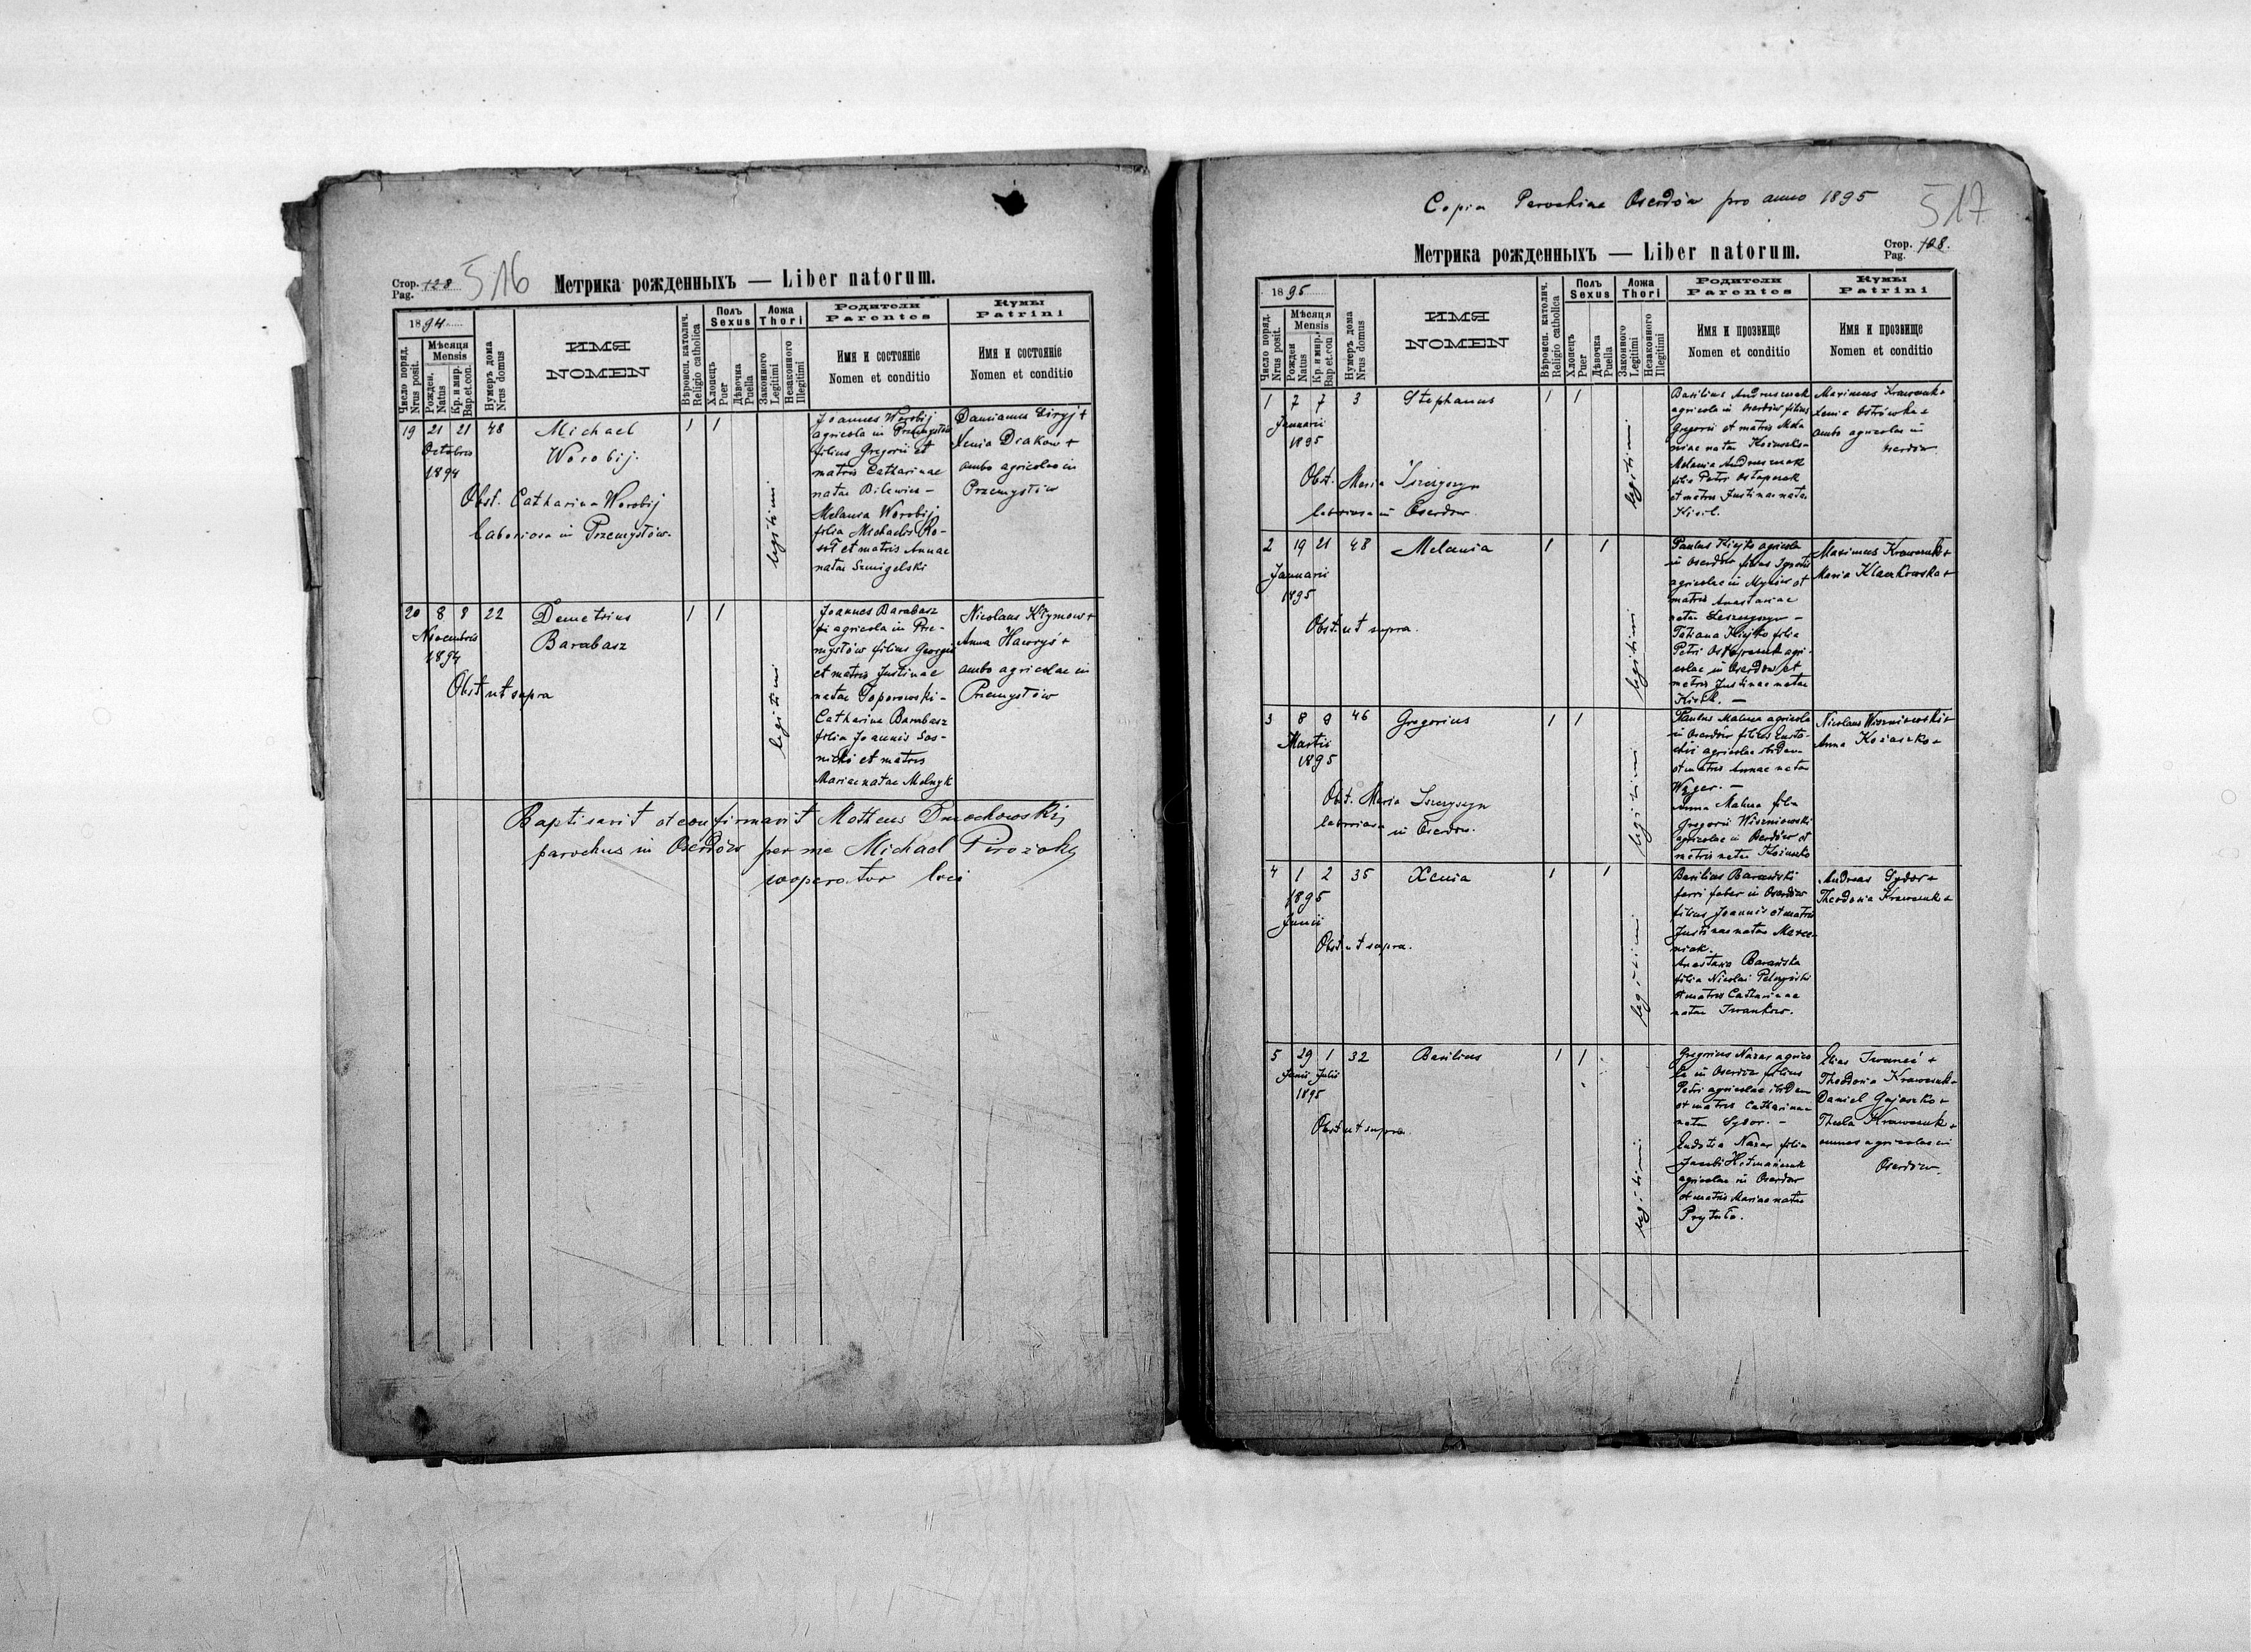 Стор. Pag. 128
516
Метрика рожденныхъ — Liber natorum.
1894
Число поряд. Nrus posit.
Мѣсяця Mensis
Рожден. Natus
Кр. и мир. Bap.et.con.
Нумеръ дома Nrus domus
ИМЯ NOMEN
Вѣроисп. католич. Religio catholica
Полъ Sexus
Хлопецъ Puer
Дѣвочка Puella
Ложа Thori
Законного Legitimi
Незаконного Illegitimi
Родители Parentes
Имя и состояніе Nomen et conditio
Кумы Patrini
Имя и состояніе Nomen et conditio
19 21 21 48
Octobris
1894
Michael
Worobij.
Obst. Catharina Worobij
laboriosa in Przemysłów.
1 1
legitimi
Joannes Worobij
agricola in Przemysłów
filius Gregorii et
matris Catharinae
natae Bilewicz –
Melania Worobij
filia Michaelis Ko-
sot et matris Annae
natae Szmigelski
Damianus Diryj +
Xenia Diakow +
ambo agricolae in
Przemysłów
20 8 8 22
Novembris
1894
Demetrius
Barabasz
Obst ut supra
1 1
legitimi
Joannes Barabasz
agricola in Prze-
mysłów filius Georgii
et matris Justinae
natae Toporowski –
Catharina Barabasz
filia Joannis Sos-
nicki et matris
Mariae natae Melnyk
Nicolaus Kłymow +
Anna Hawryś +
ambo agricolae in
Przemysłów
Baptisavit et confirmavit Matheus Dmochowskij
parochus in Oserdów per me Michael
cooperator loci
Copia Parochiae Oserdów pro anno 1895
517
Метрика рожденныхъ — Liber natorum.
Стор. Pag. 128.
1895
Число поряд. Nrus posit.
Мѣсяця Mensis
Рожден Natus
Кр. и мир. Bap.et.con
Нумеръ дома Nrus domus
ИМЯ NOMEN
Вѣроисп. католич. Religio catholica
Полъ Sexus
Хлопецъ Puer
Дѣвочка Puella
Ложа Thori
Законного Legitimi
Незаконного Illegitimi
Родители Parentes
Имя и прозвище Nomen et conditio
Кумы Patrini
Имя и прозвище Nomen et conditio
1 7 7 3
Januarii
1895
Stephanus
Obst. Maria Iszczyszyn
laboriosa in Oserdów.
1 1
legitimi
Basilius Andruszczak
agricola in Oserdów filius
Gregorii et matris Mela
niae natae Kożuszko –
Melania Andruszczak
filia Petri Ostapczuk
et matris Justinae natae
Kisil.
Maximus Krawczuk +
Xenia Ostrówka +
ambo agricolae in
Oserdów.
2 19 21 48
Januarii
1895
Melania
Obst. ut supra.
1 1
legitimi
Paulus Kiyko agricola
in Oserdów filius Ignatii
agricolae in Myców et
matris Anastasiae
natae Leszczyszyn –
Tatiana Kiyko filia
Petri Ostapczuk agri-
colae in Oserdów et
matris Justinae natae
Kisil. –
Maximus Krawczuk +
Maria Klaczkowska +
3 8 9 46
Martii
1895
Gregorius
Obst. Maria Iszczyszyn
laboriosa in Oserdów.
1 1
legitimi
Paulus Malucz agricola
in Oserdów filius Eusta-
chii agricolae ibidem
et matris Annae natae
Węger. –
Anna Malucz filia
Gregorii Wiszniowski
agricolae in Oserdów et
matris natae Kożuszko
Nicolaus Wiszniowski +
Anna Kożuszko +
4 1 2 35
1895
Junii
Xenia
Obst. ut supra.
1 1
legitimi
Basilius Barański
ferri faber in Oserdów
filius Joannis et matris
Justinae natae Marce-
niak.
Anastasia Barańska
filia Nicolai Pelczyński
et matris Catharinae
natae Iwanków.
Andreas Sydor +
Theodosia Krawczuk +
5 29 1 32
Junii Julii
1895
Basilius
Obst ut supra.
1 1
legitimi
Gregorius Nazar agrico
la in Oserdów filius
Petri agricolae ibidem
et matris Catharinae
natae Sydor. –
Eudokia Nazar filia
Jacobi Hetmańczuk
agricolae in Oserdów
et matris Mariae natae
Prytuła.
Elias Iwaneć +
Theodosia Krawczuk +
Daniel Gajoszko +
Thecla Krawczuk +
omnes agricolae in
Oserdów.